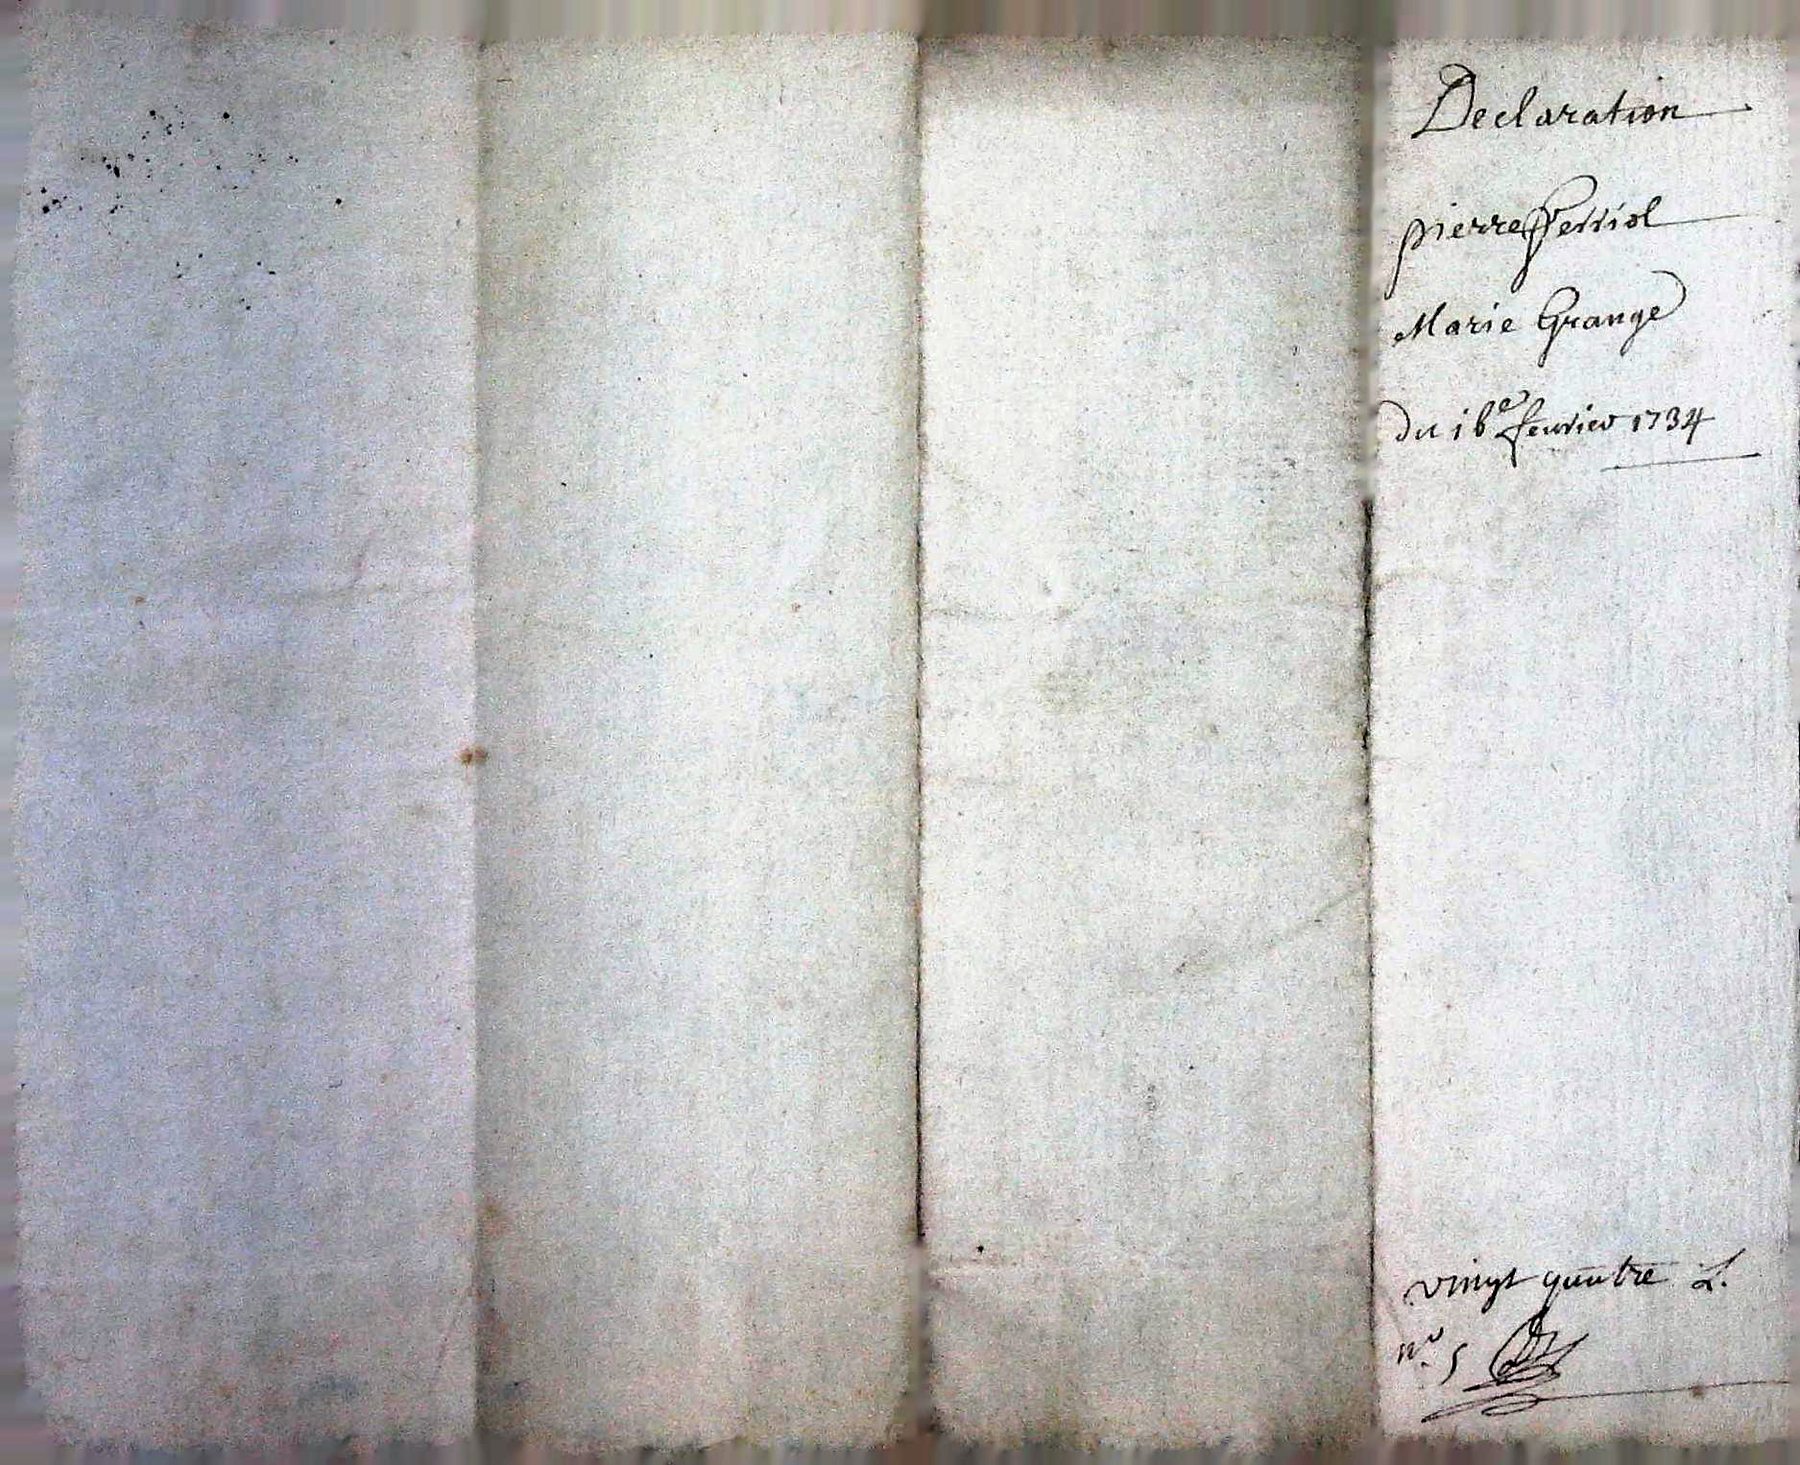 Declaration
pierre Ferriol
Marie Grange
du 16e feuvier 1734
vingt quatre L.
no. 5